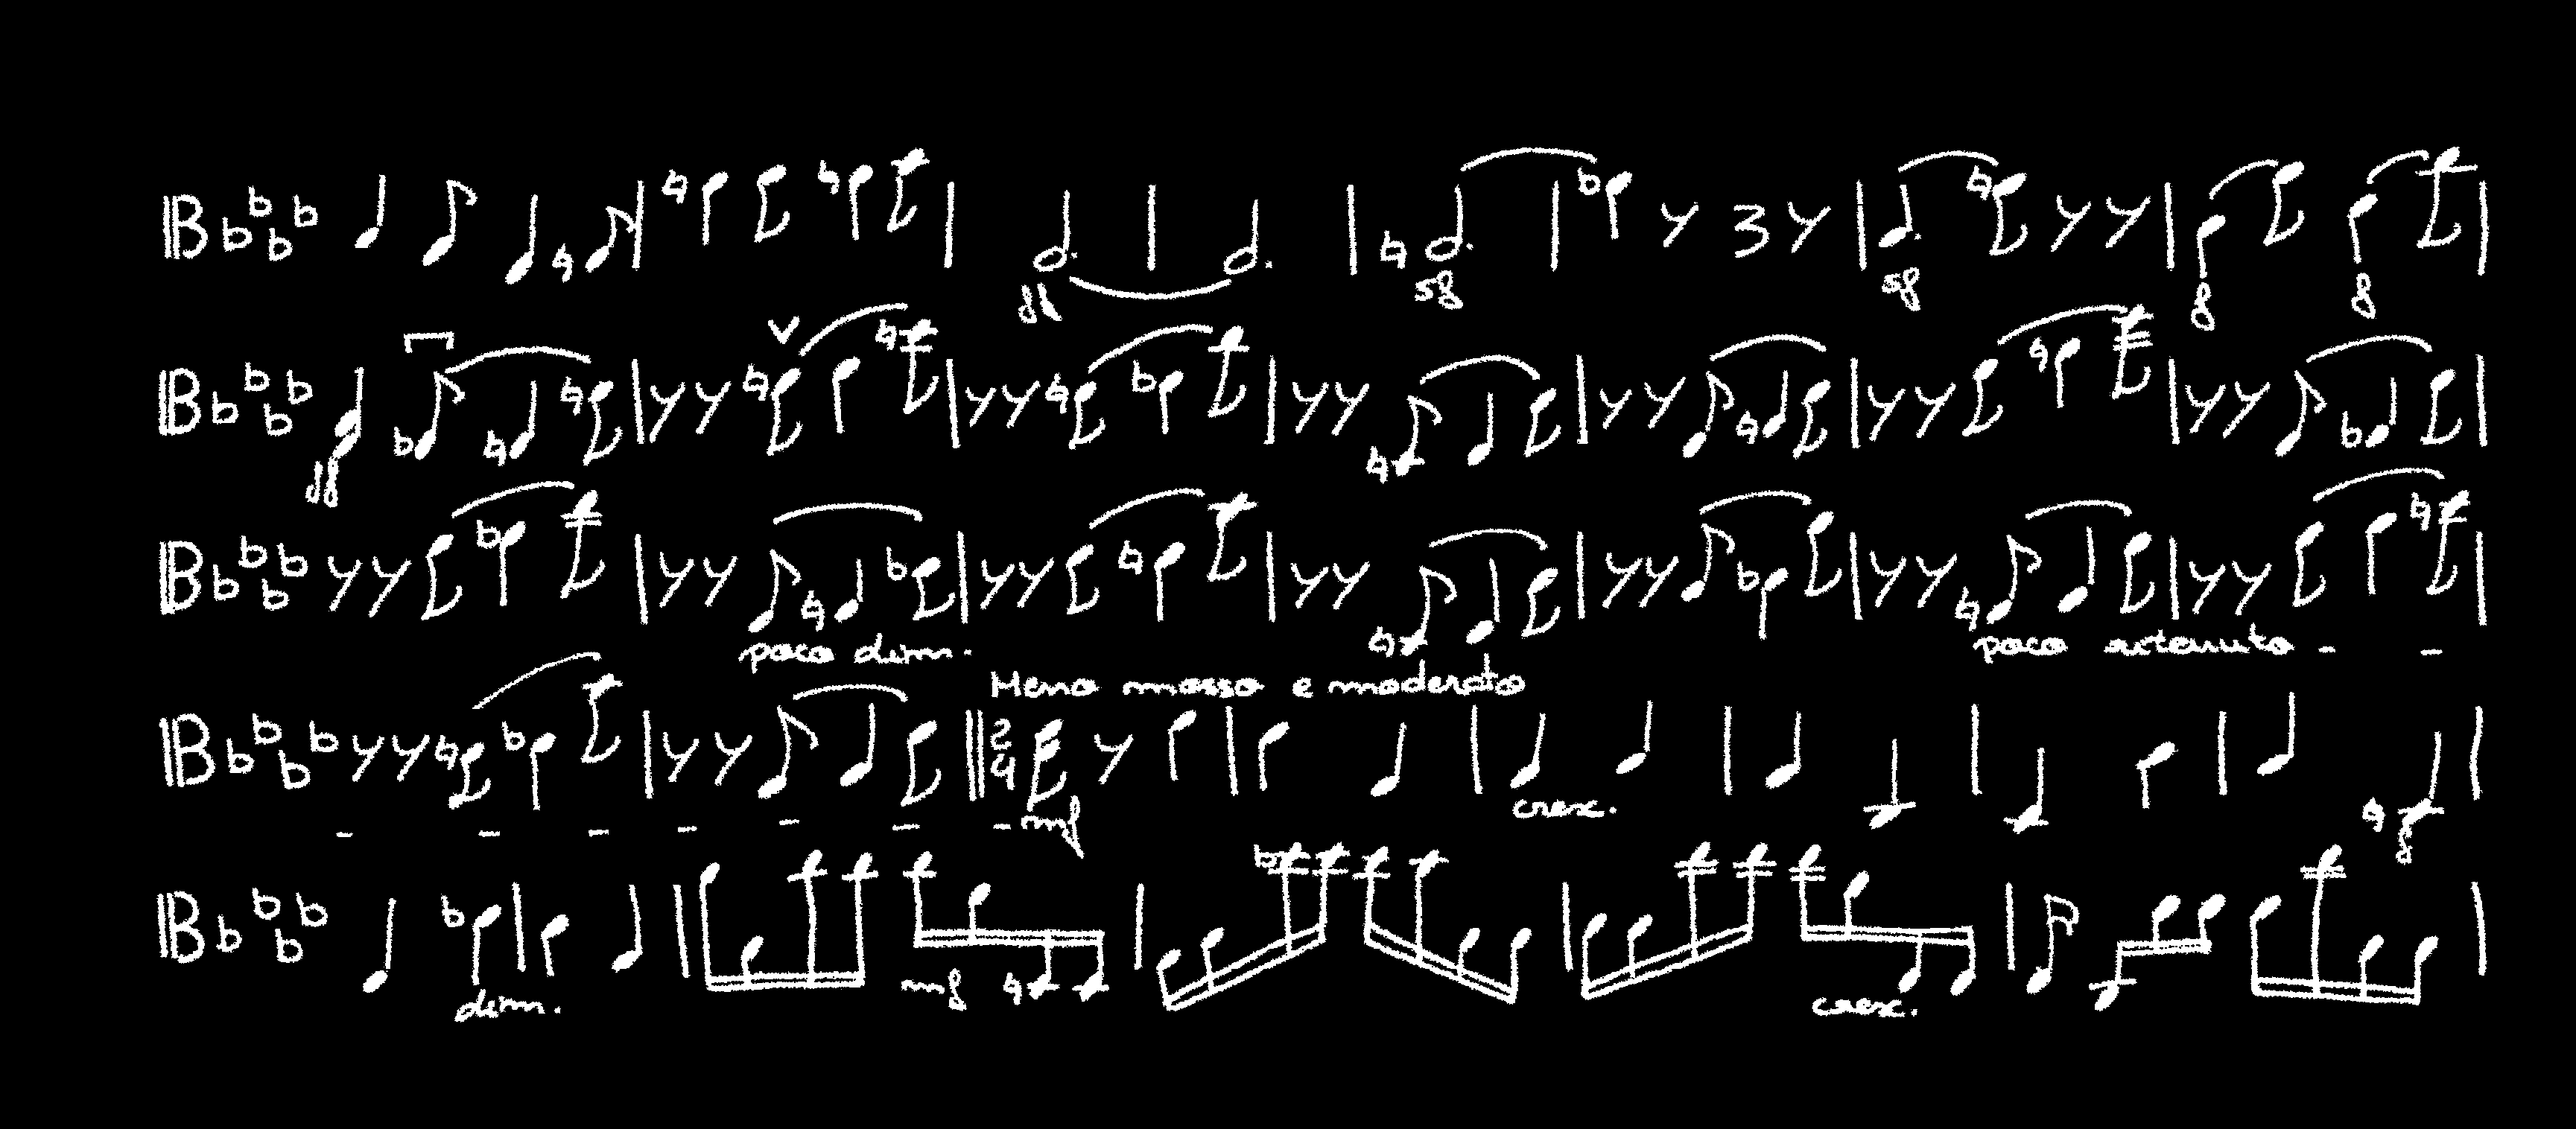 ff sf sf f f
ff
poco dim. poco ritenuto - -
Meno mosso e moderato
- - - - - - - mf cresc. f
dim. mf cresc.